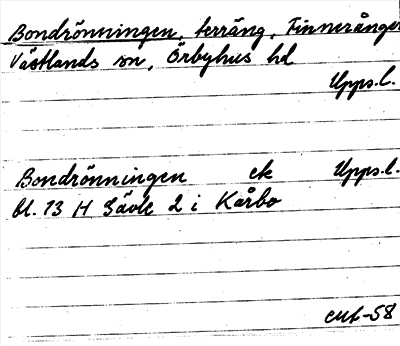 Bondrönningen, terräng, Finnerånger
Västlands sn, Örbyhus hd
Upps.l.
Bondrönningen ek Upps.l.
bl. 13 H Gävle 2 i Kårbo
cut-58